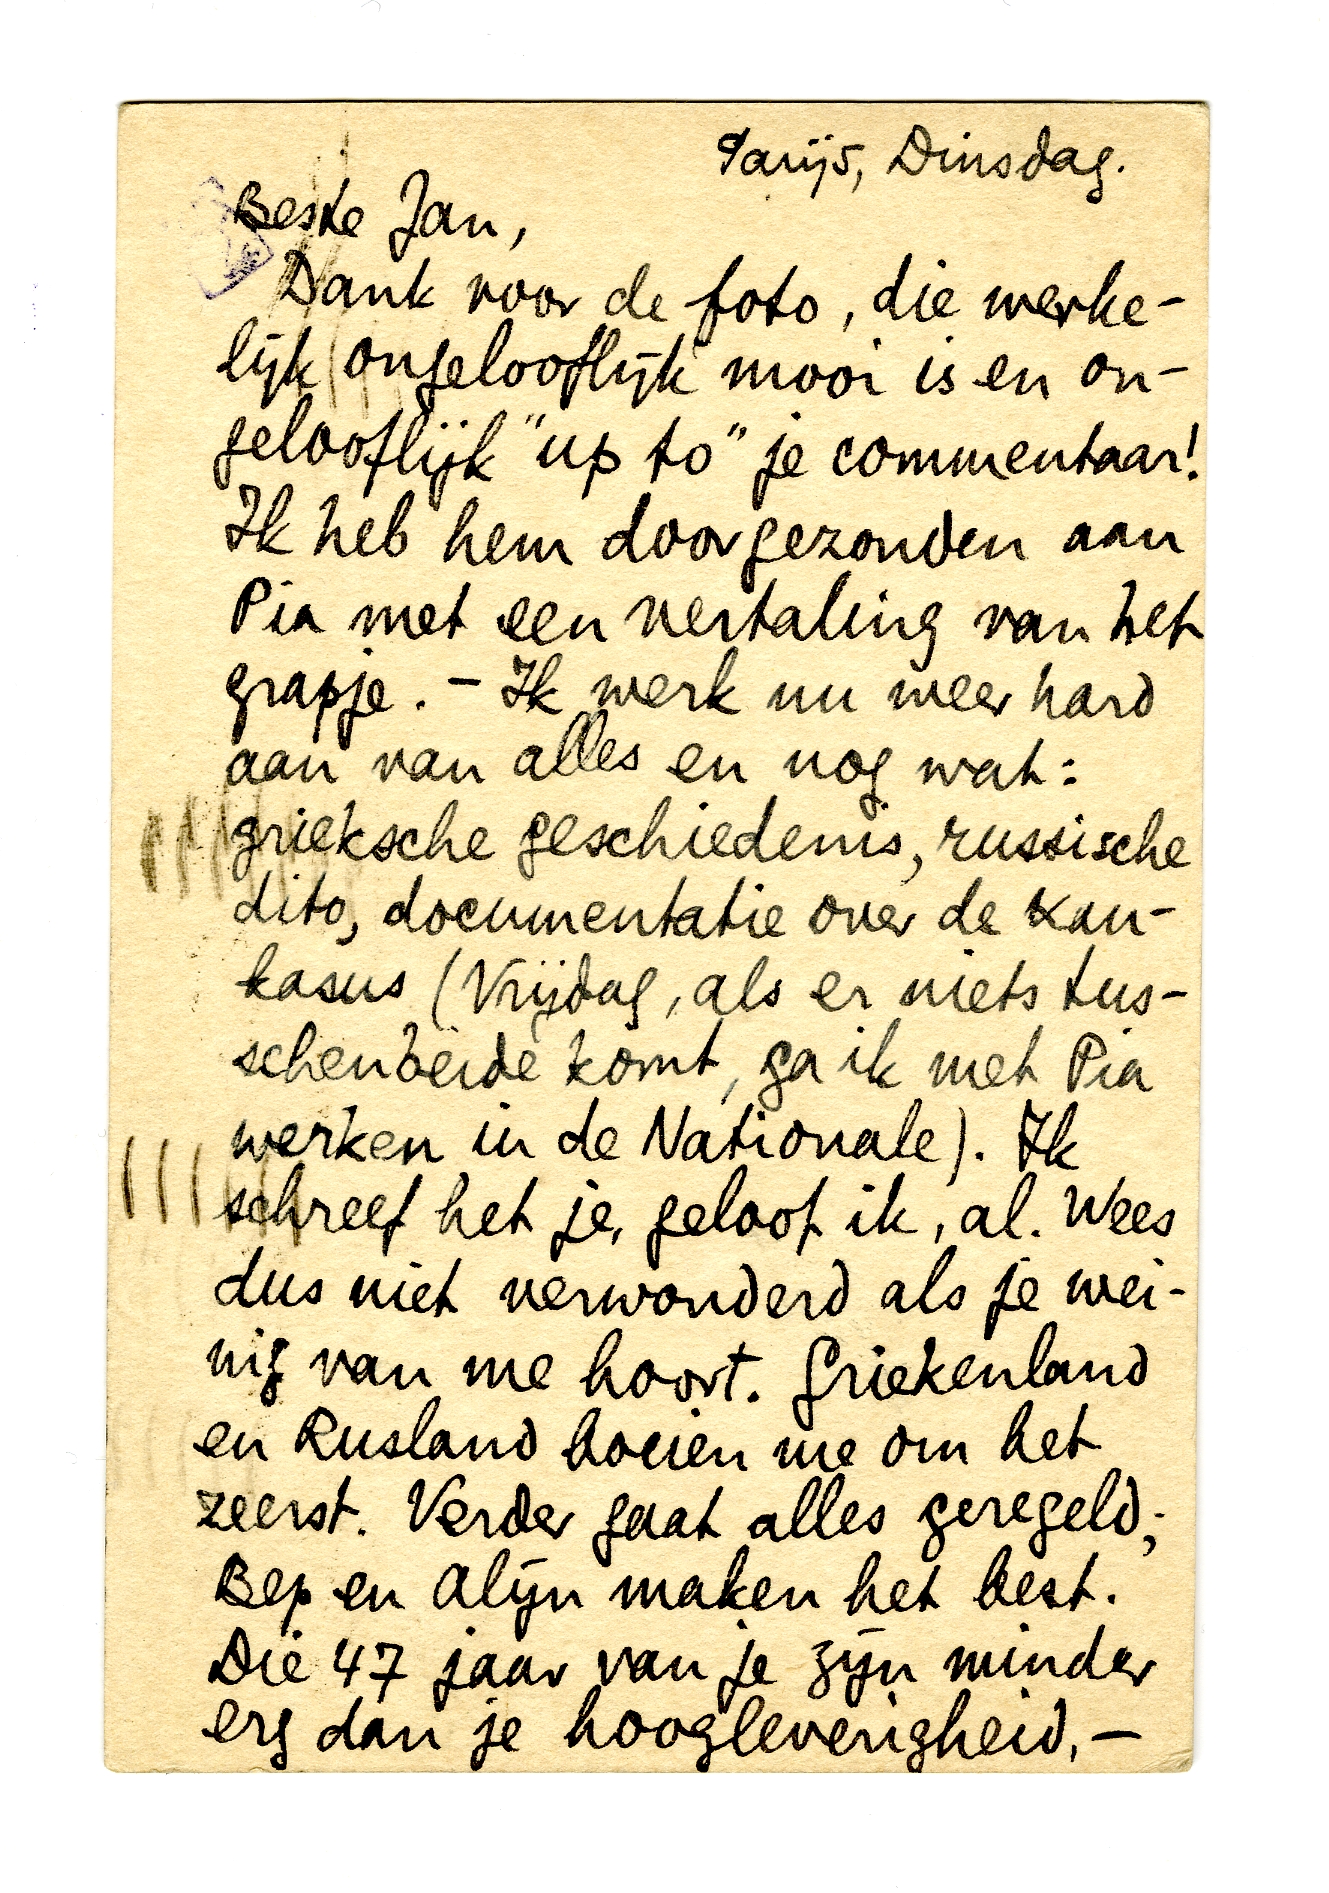 Parijs, Dinsdag.
Beste Jan,
Dank voor de foto, die werke-
lijk ongelooflijk mooi is en on-
gelooflijk "up to" je commentaar!
Ik heb hem doorgezonden aan
Pia met een vertaling van het
grapje. – Ik werk nu weer hard
aan van alles en nog wat:
grieksche geschiedenis, russische
dito, documentatie over de Kau-
kasus (Vrijdag, als er niets tus-
schenbeide komt, ga ik met Pia
werken in de Nationale). Ik
schreef het je, geloof ik, al. Wees
dus niet verwonderd als je wei-
nig van me hoort. Griekenland
en Rusland boeien me om het
zeerst. Verder gaat alles geregeld;
Bep en Alijn maken het best.
Die 47 jaar van je zijn minder
erg dan je hoogleverigheid, –